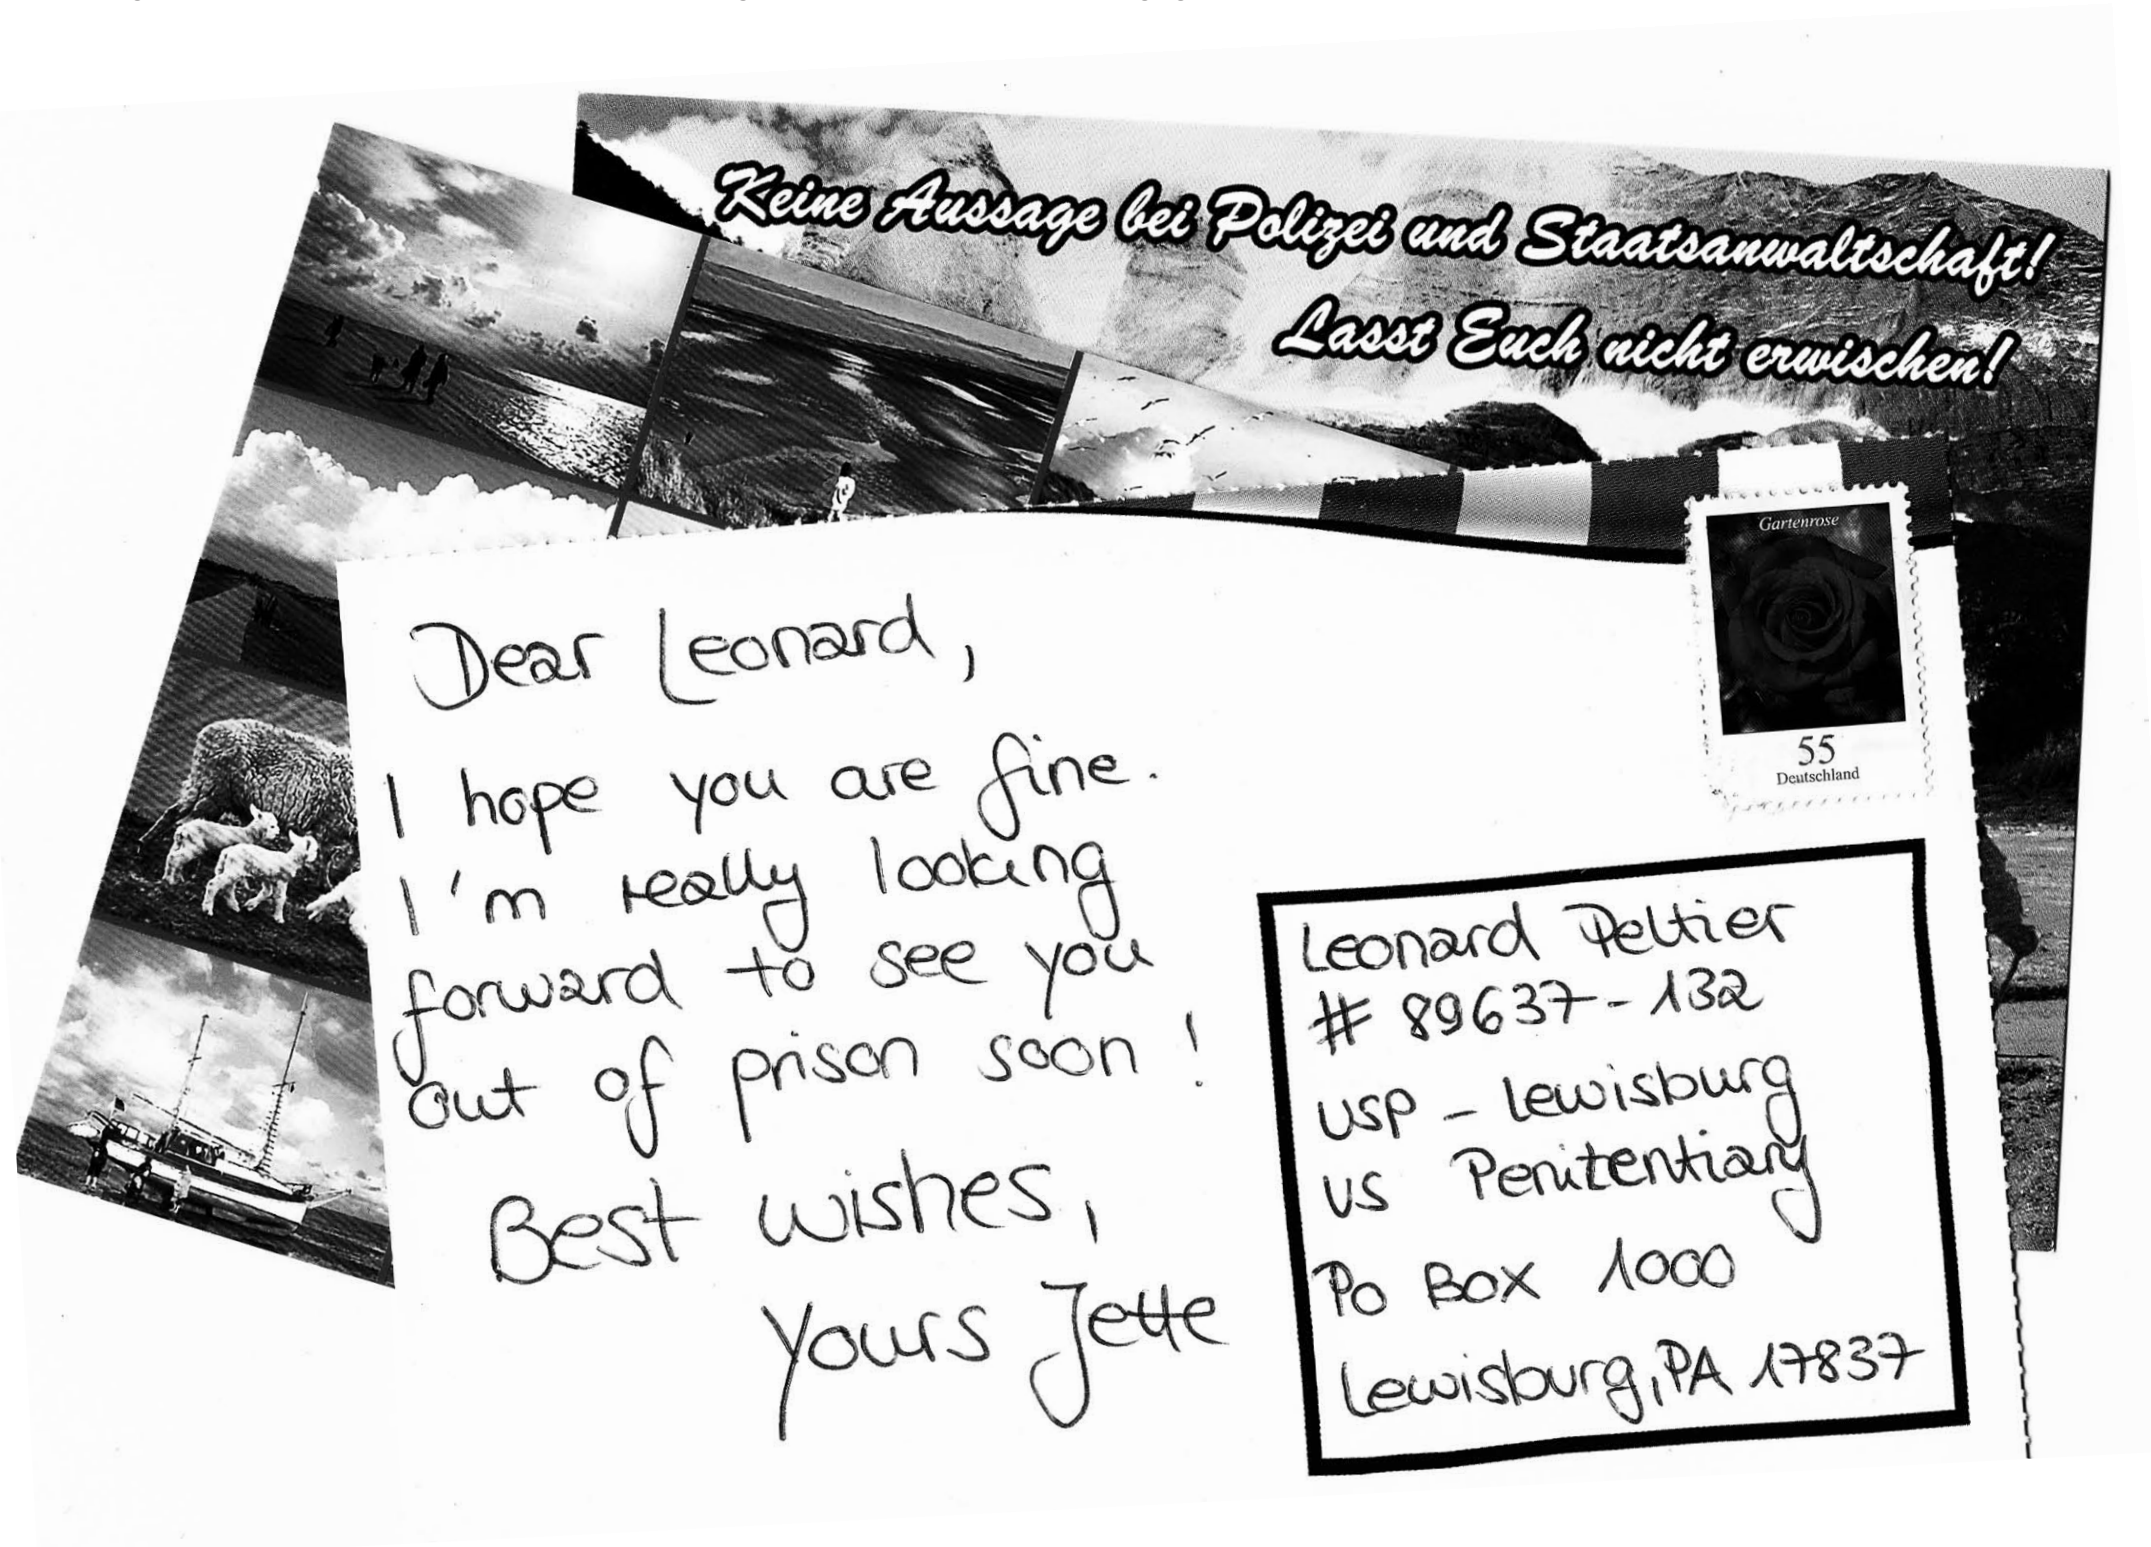 Keine Aussage bei Polizei und Staatsanwaltschaft!
Lasst Euch nicht erwischen!
Gartenrose
55
Deutschland
Dear Leonard,
I hope you are fine.
I'm really looking
forward to see you
out of prison soon!
Best wishes,
Yours Jette
Leonard Peltier
# 89637-132
USP - Lewisburg
US Penitentiary
PO BOX 1000
Lewisburg, PA 17837